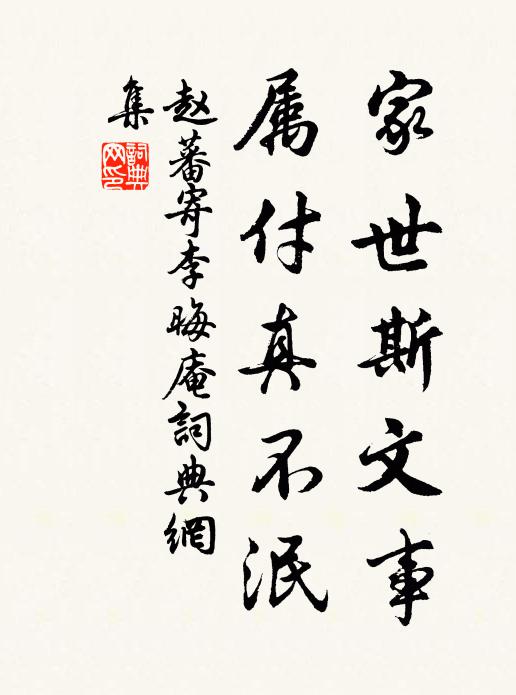 家世斯文事
属付真不泯
赵蕃寄李晦庵詞典網
集
詞典
网印